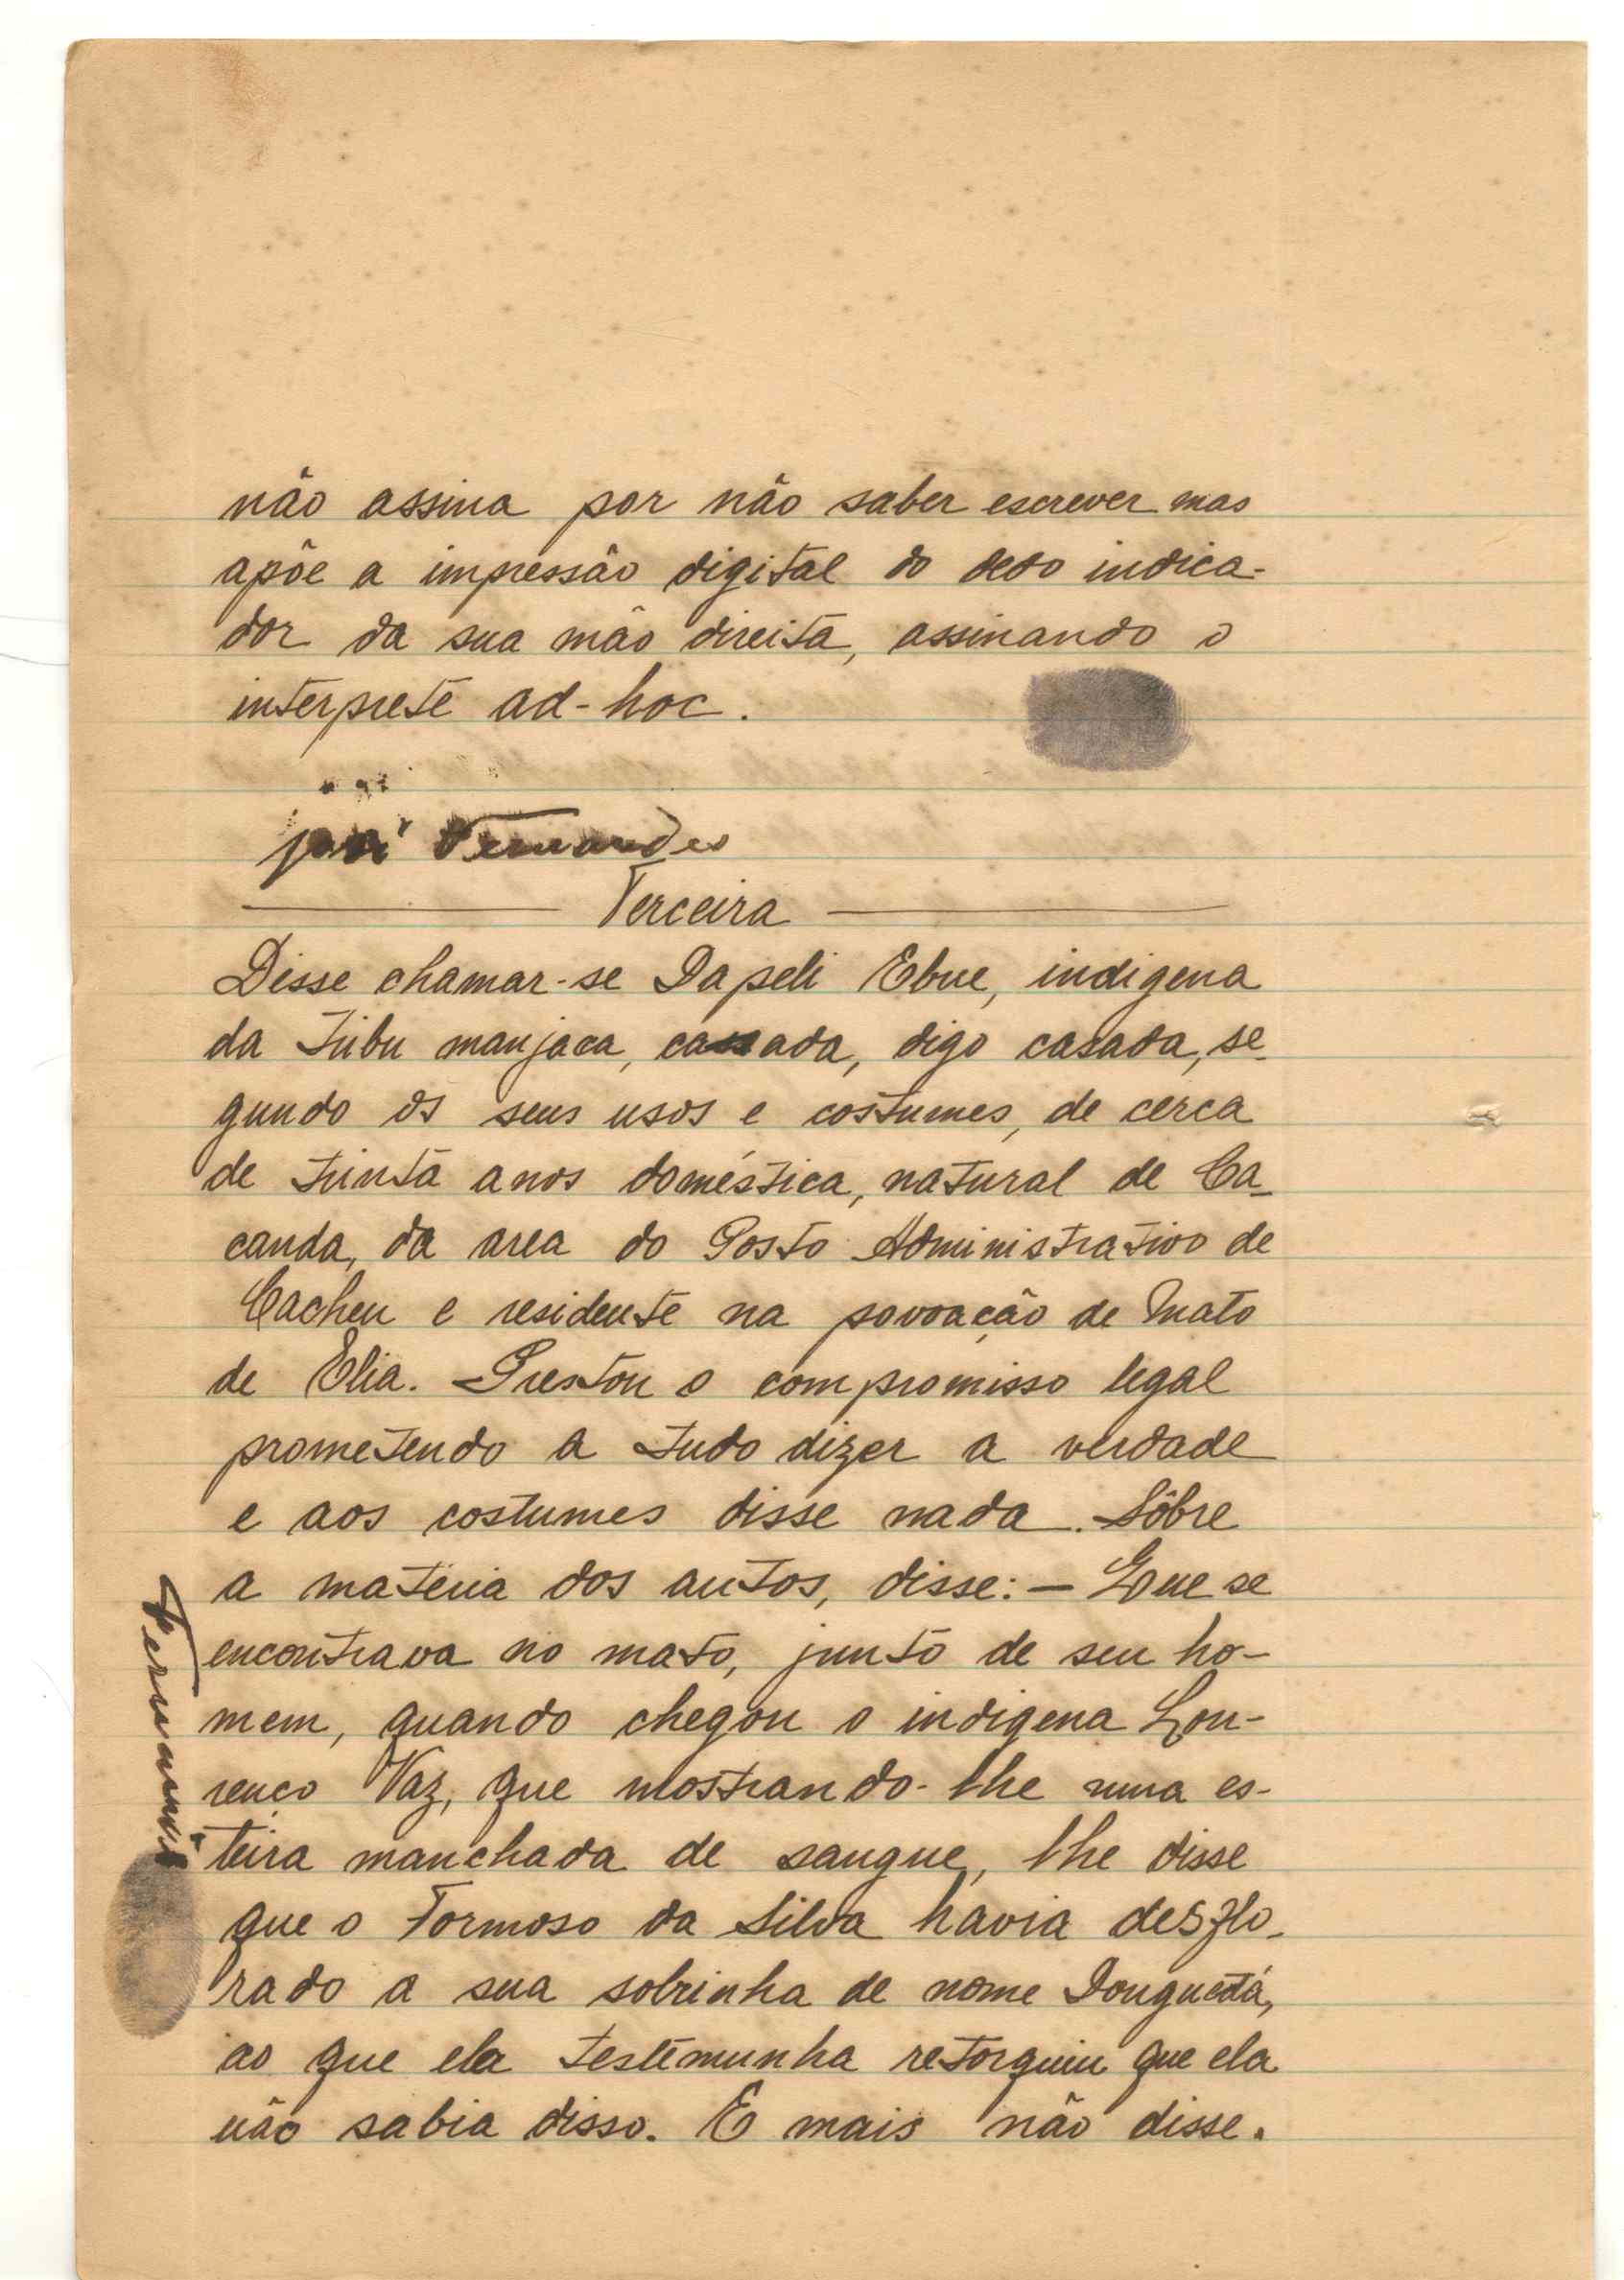 não assina por não saber escrever mas
apõe a impressão digital do dedo indica-
dor da sua mão direita, assinando o
interprete ad-hoc.
josé Fernandes
Terceira
Disse chamar-se Dapeli Ebue, indigena
da tribu manjaca, cassada, digo casada, se-
gundo os seus usos e costumes, de cerca
de trinta anos doméstica, natural de Ca-
canda, da area do Posto Administrativo de
Cacheu e residente na povoação de Mato
de Elia. Prestou o compromisso legal
prometendo a tudo dizer a verdade
e aos costumes disse nada. Sôbre
a matéria dos autos, disse: — Que se
encontrava no mato, junto de seu ho-
mem, quando chegou o indigena Lou-
renço Vaz, que mostrando-lhe uma es-
teira manchada de sangue, lhe disse
que o Formoso da Silva havia desflo-
rado a sua sobrinha de nome Donguetá,
ao que ela testemunha retorquiu que ela
não sabia disso. E mais não disse.